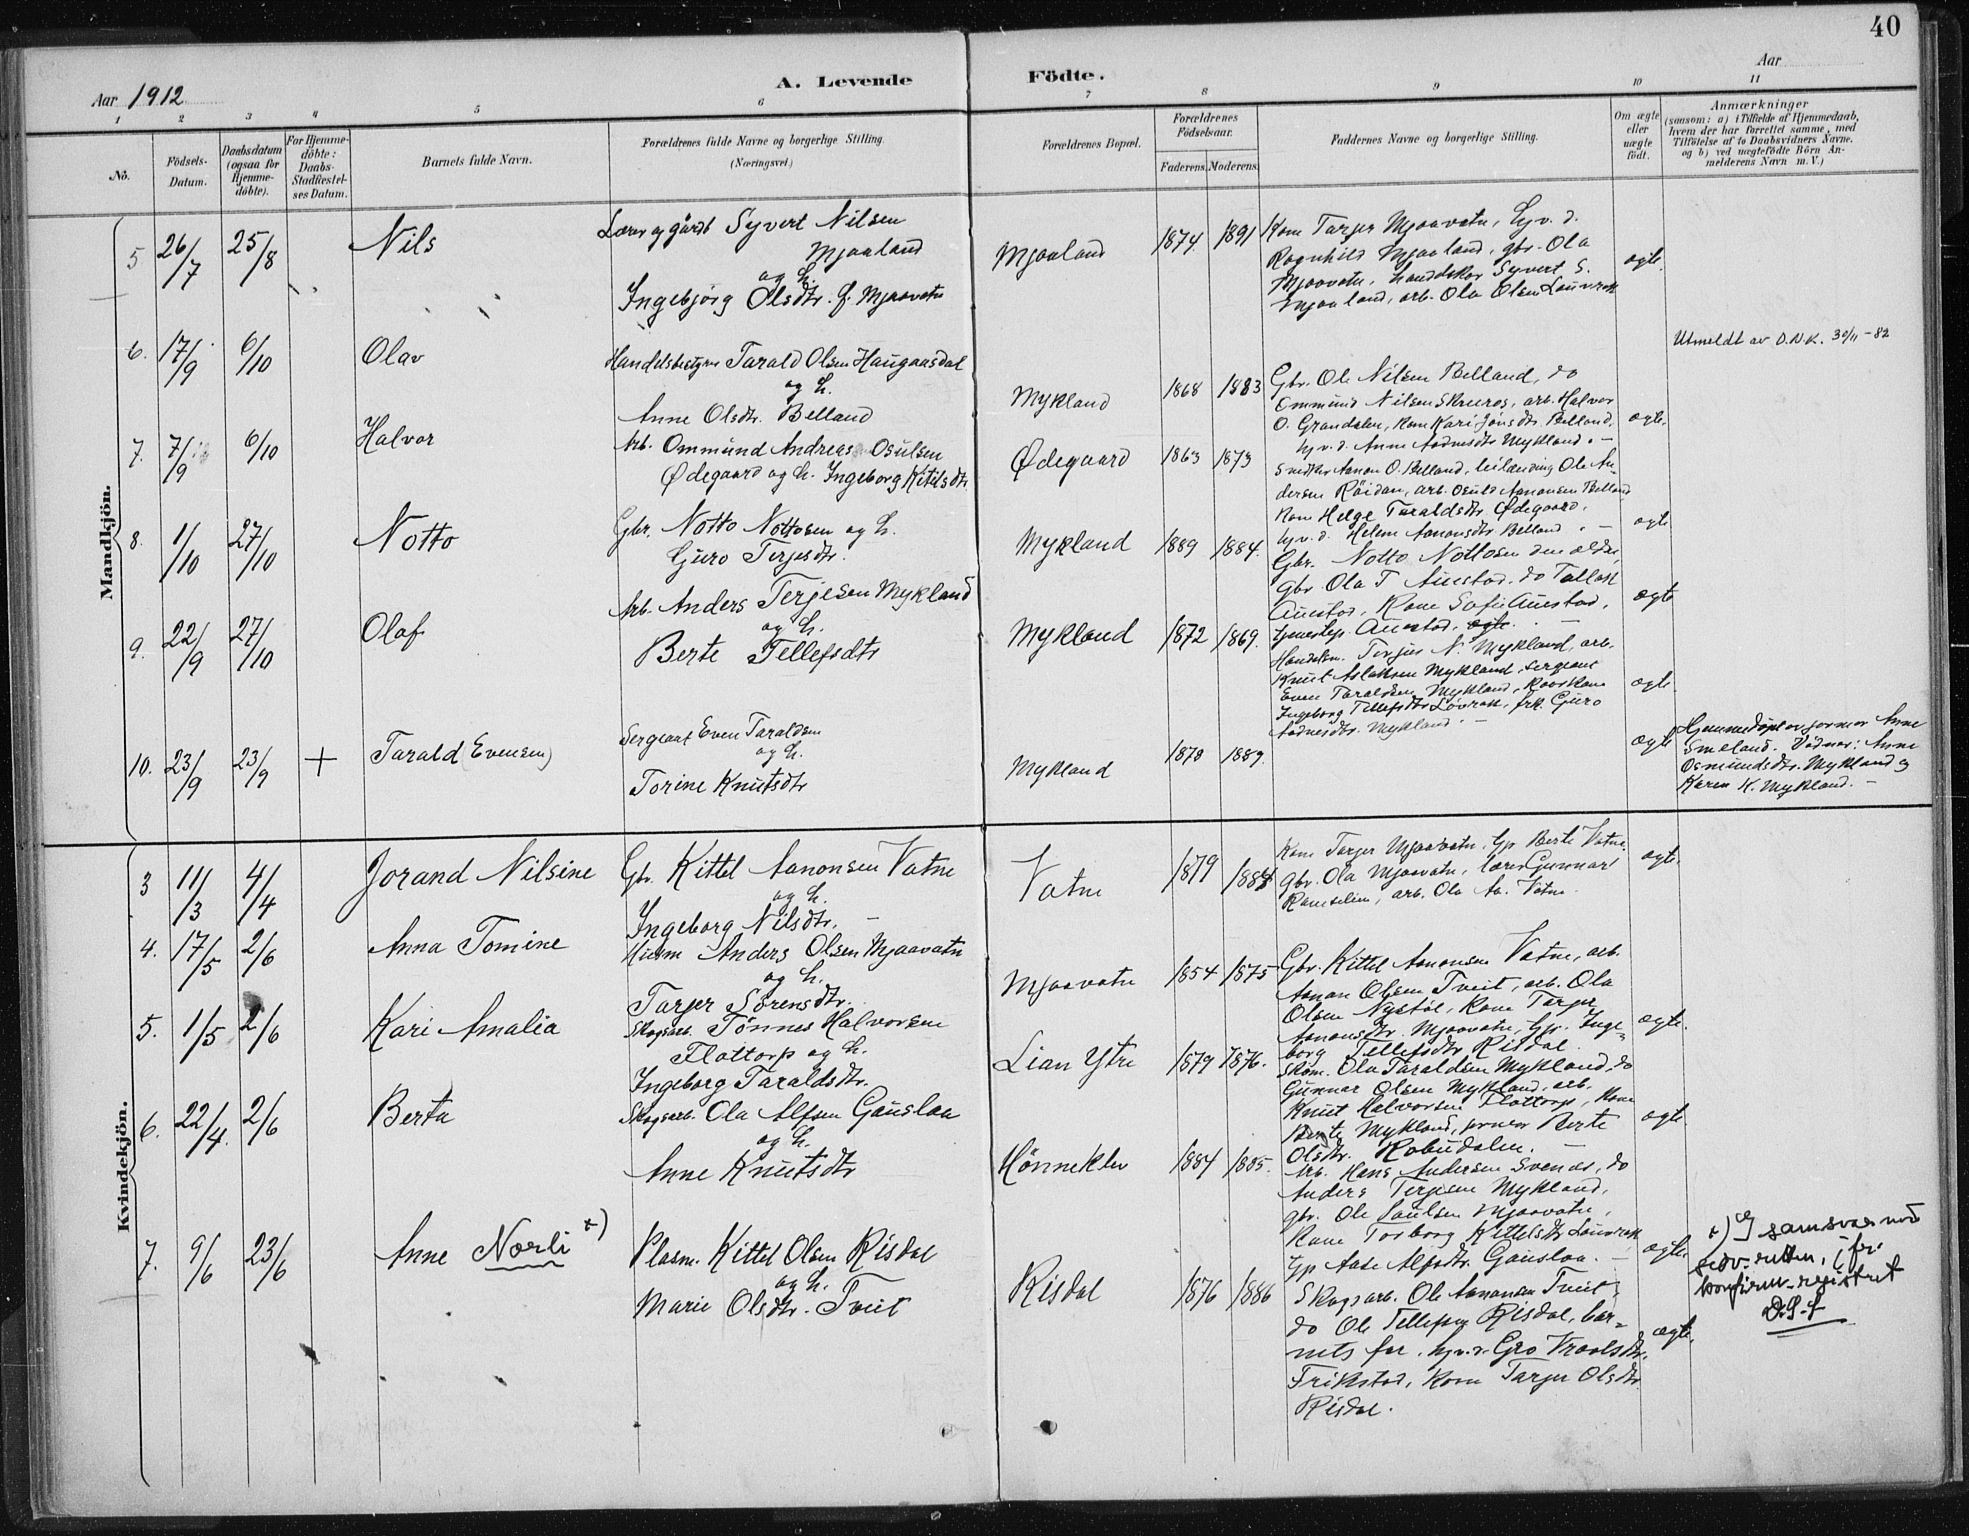 40
Aar 1912
A. Levende
Födte.
Aar
1 2 3 4 5 6 7 8 9 10 11
No.
Födsels-Datum.
Daabsdatum (ogsaa for Hjemme-döbte).
For Hjemme-döbte: Daabs-Stadfæstel-ses Datum.
Barnets fulde Navn.
Forældrenes fulde Navne og borgerlige Stilling. (Næringsvei.)
Forældrenes Bopæl.
Forældrenes Födselsaar.
Faderens. Moderens.
Faddernes Navne og borgerlige Stilling.
Om ægte eller uægte födt.
Anmærkninger
(saasom: a) i Tilfælde af Hjemmedaab,
hvem der har forrettet samme, med
Tilföielse af to Daabsvidners Navne.
og b) ved uægtefödte Börn An-
melderens Navn m. V.)
Mandkjön.
5 26/7 25/8 Nils
Lærer og gårdb Syvert Nilsen
Mjaaland
og h.
Ingebjörg Olsdtr. f. Mjaavatn
Mjaaland 1874 1891
Kone Tarjer Mjaavatn, hjv. d.
Ragnhild Mjaaland, gbr. Ola
Mjaavatn, handelskar Syvert S.
Mjaaland, arb. Ola Olsen Lauvrak
ægte.
6. 17/9 6/10 Olav
Handelsbestyrer Tarald Olsen Haugaasdal
og h.
Anne Olsdtr. Belland
Mykland 1868 1883
Gbr. Ole Nilsen Belland, do
Ommund Nilsen Skreros, arb. Halvor
O. Grandalen, kone Kari Jonsdtr Belland,
hjv. d. Anne Aadnesdtr Mykland. –
ægte.
Utmeldt av D.N.K. 30/11 - 82
7. 7/9 6/10 Halvor
Arb. Ommund Andreas Osulsen
Ødegaard og h. Ingeborg Ketilsdtr
Ødegaard 1863 1873
Snedker Aanon O. Belland, leilænding Ole An-
dersen Röidan, arb. Osuld Aanonsen Belland
Kone Helge Taraldsdtr Ødegaard,
hjv. d. Helene Aanonsdtr Belland. –
ægte
8. 1/10 27/10 Notto
Gbr. Notto Nottosen og h.
Guro Terjesdtr.
Mykland 1889 1884.
Gbr. Notto Nottosen den ældre,
gbr Ola T Austad, do Tallak
Austad, Kone Sofie Austad,
Austad. –
ægte
9. 22/9 27/10 Olaf
Arb. Anders Terjesen Mykland
og h.
Berte Tellefsdtr
Mykland 1872 1869.
Handelsm. Terjus N. Mykland, arb.
Knut Aslaksen Mykland, sergeant
Even Taraldsen Mykland,
Ingeborg Tellefsdtr Lövrak, frk. Guro
Aadnesdtr. Mykland. –
ægte
10. 23/9 23/9 + Tarald (Evensen)
Sergeant Even Taraldsen
og h.
Torine Knutsdtr
Mykland 1878 1889.
ægte
Hjemmedöpt av jormor Anne
Smeland. Vidner: Anne
Osmundsdtr. Mykland og
Karen K. Mykland. –
Kvindekjön.
3 11/3 4/4 Jorand Nilsine
Gbr. Kittel Aanonsen Vatne
og h.
Ingeborg Nilsdtr. –
Vatne 1879 1884
Kone Tarjer Mjaavatn, hjp Berte Vatne
gbr. Ola Mjaavatn, lærer Gunnar
Ramselien, arb. Ola Aa. Vatne.
ægte.
4. 17/5 2/6 Anna Tomine
Husm Anders Olsen Mjaavatn
og h.
Tarjer Sörensdtr.
Mjaavatn 1854 1875
Gbr. Kittel Aanonsen Vatne, arb.
Aanon Olsen Tveit, arb. Ola
Olsen Nystöl, kone Tarjer
Aanonsdtr. Mjaavatn, hjp. Inge-
borg Tellefsdtr Risdal.
ægte.
5. 1/5 2/6 Kari Amalia
Skogsarb. Tönnes Halvorsen
Flottorp og h.
Ingeborg Taraldsdtr.
Lian Ytre 1879 1876.
Skom. Ola Taraldsen Mykland, do
Gunnar Olsen Mykland, arb.
Knut Halvorsen Flottorp, kone
Berte Mykland, Berte
Olsdtr. Robudalen. –
ægte
6. 22/4. 2/6 Berta
Skogsarb. Ola Alfsen Gauslaa
og h.
Anne Knutsdtr
Hönneklev 1884 1885.
Arb. Hans Andersen Svenas, do
Anders Terjesen Mykland,
gbr. Ole Paulsen Mjaavatn,
Kone Torborg Kittelsdtr Lauvrak
hjp Aase Alfsdtr. Gauslaa. –
ægte.
7. 9/6 23/6 Anne Nærli +)
Plasm. Kittel Olsen Risdal
og h.
Marie Olsdtr. Tveit
Risdal 1876 1886
Skogsarb. Ole Aanonsen Tveit,
do Ole Tellefsen Risdal, bar-
nets far, hjv. d Gro Vraalsdtr.
Frikstad, kone Tarjer Olsdtr
Risdal.
ægte.
+) I samsvar med
sedv. retten, jfr.
konfirm. registret